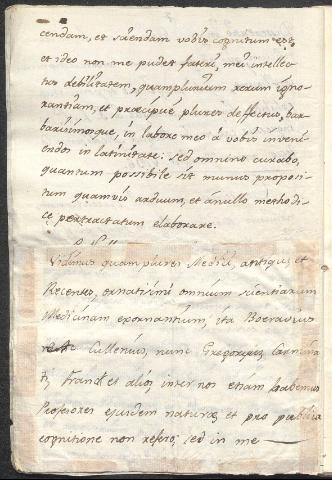 cendam, et sciendam vobis cognitum est,
et ideo non me pudet fateri, mei intellec
tus debilitatem, quamplurium rerum igno-
rantiam, et præcipuè plures deffectus, bar-
barismosque, in labore meo à vobis inveni-
endos in latinitate: sed omnino curabo,
quantum possibile sit munus proposi-
tum quamvis arduum, et à nullo methodi-
ce pertractatum elaborare.
Vidimus quam plures Medici, antiqui et
Recentes, ornatisimi omnium scientiarum
Medicinam exornantium, ita Boeravius
Cullenius, nunc Gregorius,
Frank et alios, inter nos etiam habemus
Profesores ejusdem naturæ et pro publica
cognitione non refero; sed in me